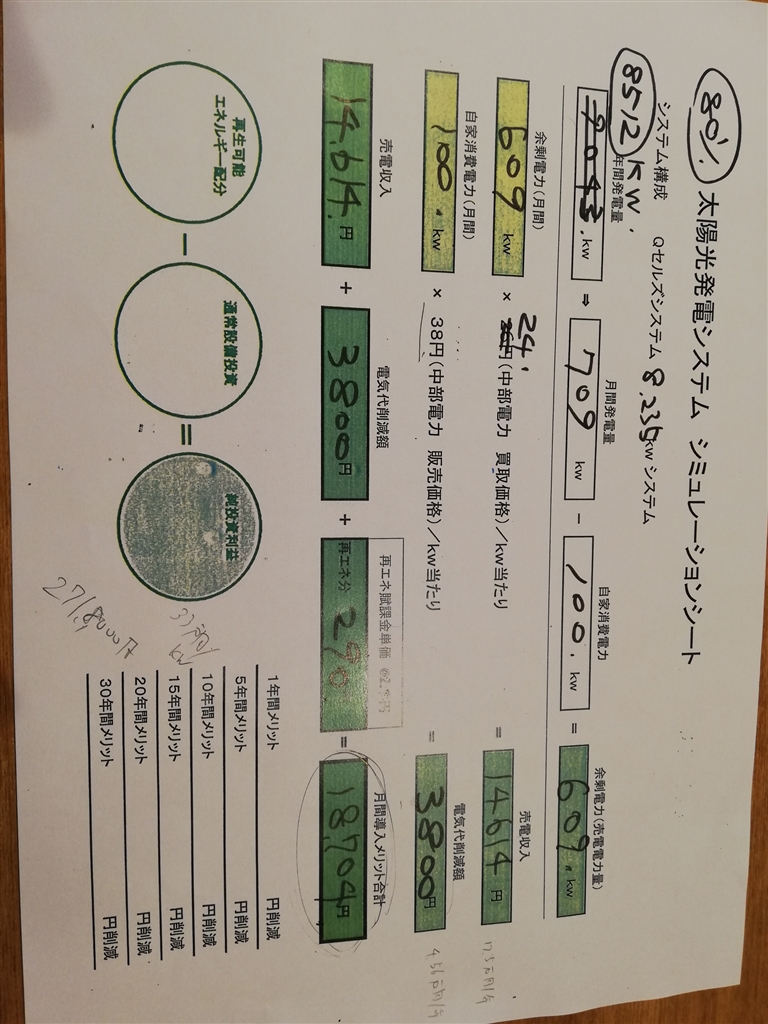 80% 太陽光発電システム シミュレーションシート
システム構成 Qセルズシステム 8,235kwシステム
8512KW.
年間発電量 月間発電量 自家消費電力 余剰電力(売電電力量)
9043.kw ⇒ 709 kw − 100.kw = 609.kw
余剰電力(月間) 売電収入
609 kw × 24.円(中部電力 買取価格)/kw当たり = 14614 円
自家消費電力(月間) 電気代削減額
100.kw × 38円(中部電力 販売価格)/kw当たり = 3800円
17.5万円/年
4.56万円/年
再エネ賦課金単価
売電収入 電気代削減額 再エネ分 月間導入メリット合計
14.614.円 + 3800円 + 290 = 18704円
再生可能エネルギー配分 − 通常設備投資 = 純投資利益
1年間メリット 円削減
5年間メリット 円削減
10年間メリット 円削減
15年間メリット 円削減
20年間メリット 円削減
30年間メリット 円削減